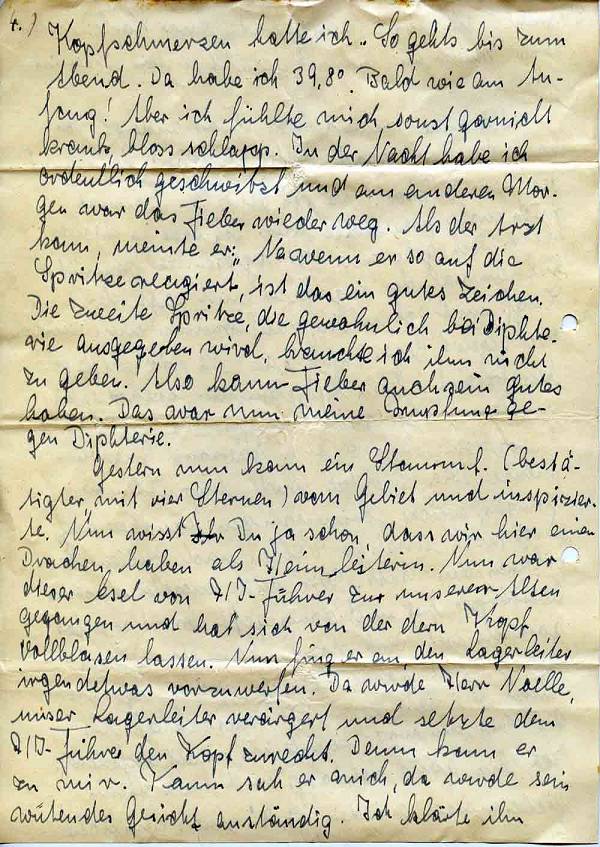 4.)
Kopfschmerzen hatte ich. So gehts bis zum
Abend. Da habe ich 39,8°. Bald wie am An-
fang! Aber ich fühlte mich sonst garnicht
krank, bloss schlapp. In der Nacht habe ich
ordentlich geschwitzt und am anderen Mor-
gen war das Fieber wieder weg. Als der Arzt
kam, meinte er: „Na wenn er so auf die
Spritze reagiert, ist das ein gutes Zeichen.
Die zweite Spritze, die gewöhnlich bei Diphte-
rie ausgegeben wird, brauchte ich ihm nicht
zu geben. Also kann Fieber auch sein gutes
haben. Das war nun meine Impfung ge-
gen Diphterie.
Gestern nun kam ein Stammf. (bestä-
tigter, mit vier Sternen) vom Gebiet und inspizier-
te. Nun wisst Ihr Du ja schon, dass wir hier einen
Drachen haben als Heimleiterin. Nun war
dieser Esel von HJ-Führer zur unserer Alten
gegangen und hat sich von der den Kopf
vollblasen lassen. Nun fing er an, den Lagerleiter
irgendetwas vorzuwerfen. Da wurde Herr Noelle,
unser Lagerleiter verärgert und setzte dem
HJ-Führer den Kopf zurecht. Dann kam er
zu mir. Kaum sah er mich, da wurde sein
wütendes Gesicht anständig. Ich klärte ihn